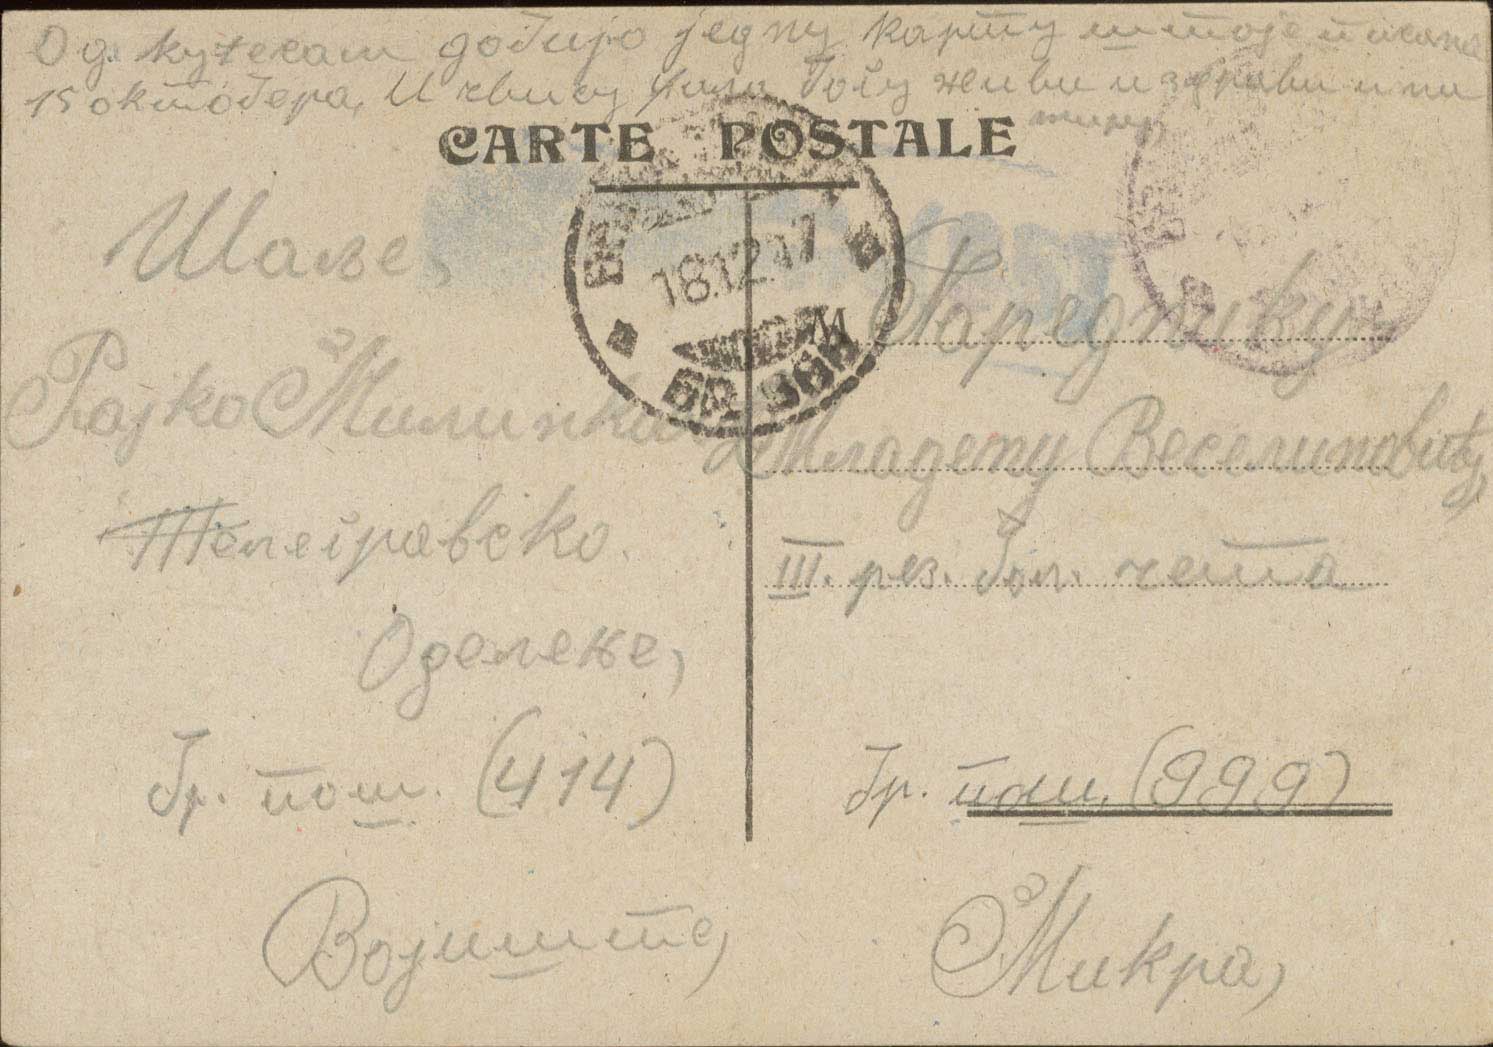 Од кућесам добијо једну карту штоје писана
15 октобера, И сви су фала Богу живи и здрави и ти
CARTE POSTALE
18.12.17
Шаље,
Рајко Милинко
Телеграфско
Оделење,
бр. пош. (414)
Војиште,
М
Наредnику
Младену Веселиновићу,
III. рез. бол. чета
бр. пош. (999)
Микра,